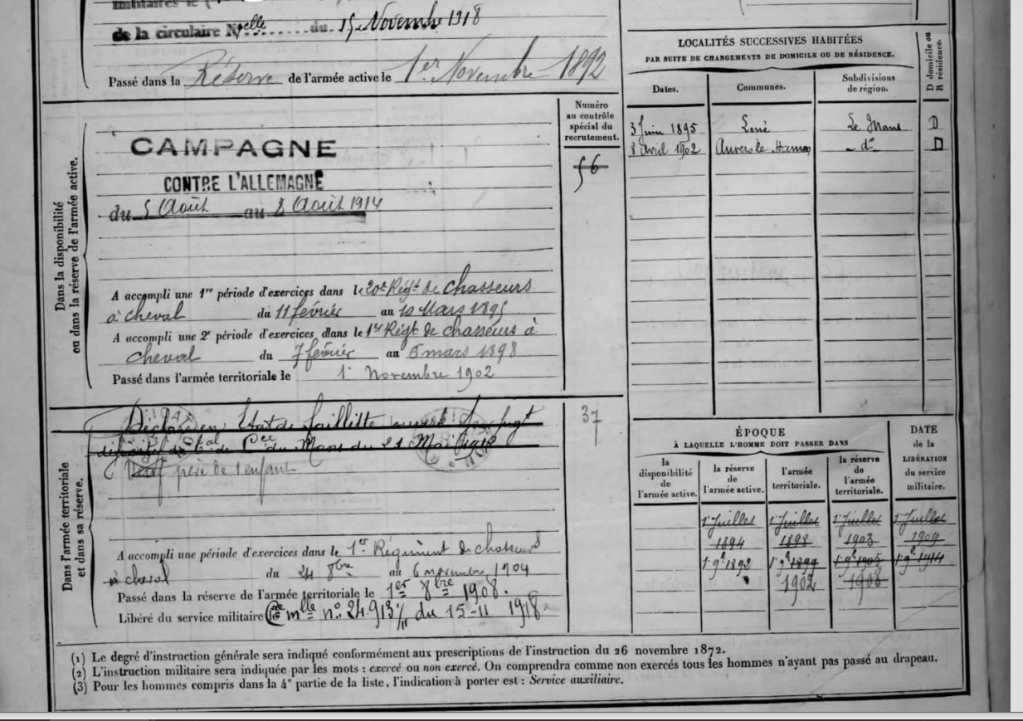 militaires le
de la circulaire Nelle du 15 Novembre 1918
Passé dans la Réserve de l'armée active le 1er Novembre 1892
Dans la disponibilité
ou dans la réserve de l'armée active.
CAMPAGNE
CONTRE L'ALLEMAGNE
du 5 Août au 8 Août 1914
A accompli une 1re période d'exercices dans le 20e Régt de chasseurs
à cheval du 11 février au 10 Mars 1895
A accompli une 2e période d'exercices dans le 1er Régt de chasseurs à
cheval du 7 février au 6 mars 1898
Passé dans l'armée territoriale le 1er Novembre 1902
Numéro
au contrôle
spécial du
recrutement.
56
Dans l'armée territoriale
et dans sa réserve.
Déclaré en Etat de faillite jugt
du Mans du 21 Mai
Veuf père de 1 enfant
37
A accompli une période d'exercices dans le 1er Régiment de chasseurs
à cheval du 24 8bre au 6 novembre 1904
Passé dans la réserve de l'armée territoriale le 1er 8bre 1908.
Libéré du service militaire mlle no 24.913 1/11 du 15-11 1918
LOCALITÉS SUCCESSIVES HABITÉES
PAR SUITE DE CHANGEMENTS DE DOMICILE OU DE RÉSIDENCE.
Dates. Communes. Subdivisions de région. D domicile ou R résidence.
3 Juin 1895 Loué Le Mans D
8 Avril 1902 Auvers le Hamon - do - D
ÉPOQUE
À LAQUELLE L'HOMME DOIT PASSER DANS
DATE
de la
LIBÉRATION
du service
militaire.
la disponibilité de l'armée active.
la réserve de l'armée active.
l'armée territoriale.
la réserve de l'armée territoriale.
1er Juillet 1er Juillet 1er Juillet 1er Juillet
1894 1898 1903 1909
1 9e 1892 1 9e 1899 1 9e 1905 1 9e 1914
1902 1908
(1) Le degré d'instruction générale sera indiqué conformément aux prescriptions de l'instruction du 26 novembre 1872.
(2) L'instruction militaire sera indiquée par les mots : exercé ou non exercé. On comprendra comme non exercés tous les hommes n'ayant pas passé au drapeau.
(3) Pour les hommes compris dans la 4e partie de la liste, l'indication à porter est : Service auxiliaire.